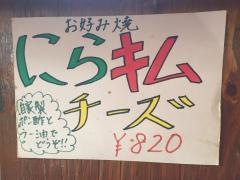 お好み焼
にらキム
チーズ
¥820
自家製
ポン酢と
ラー油で
どうぞ!!